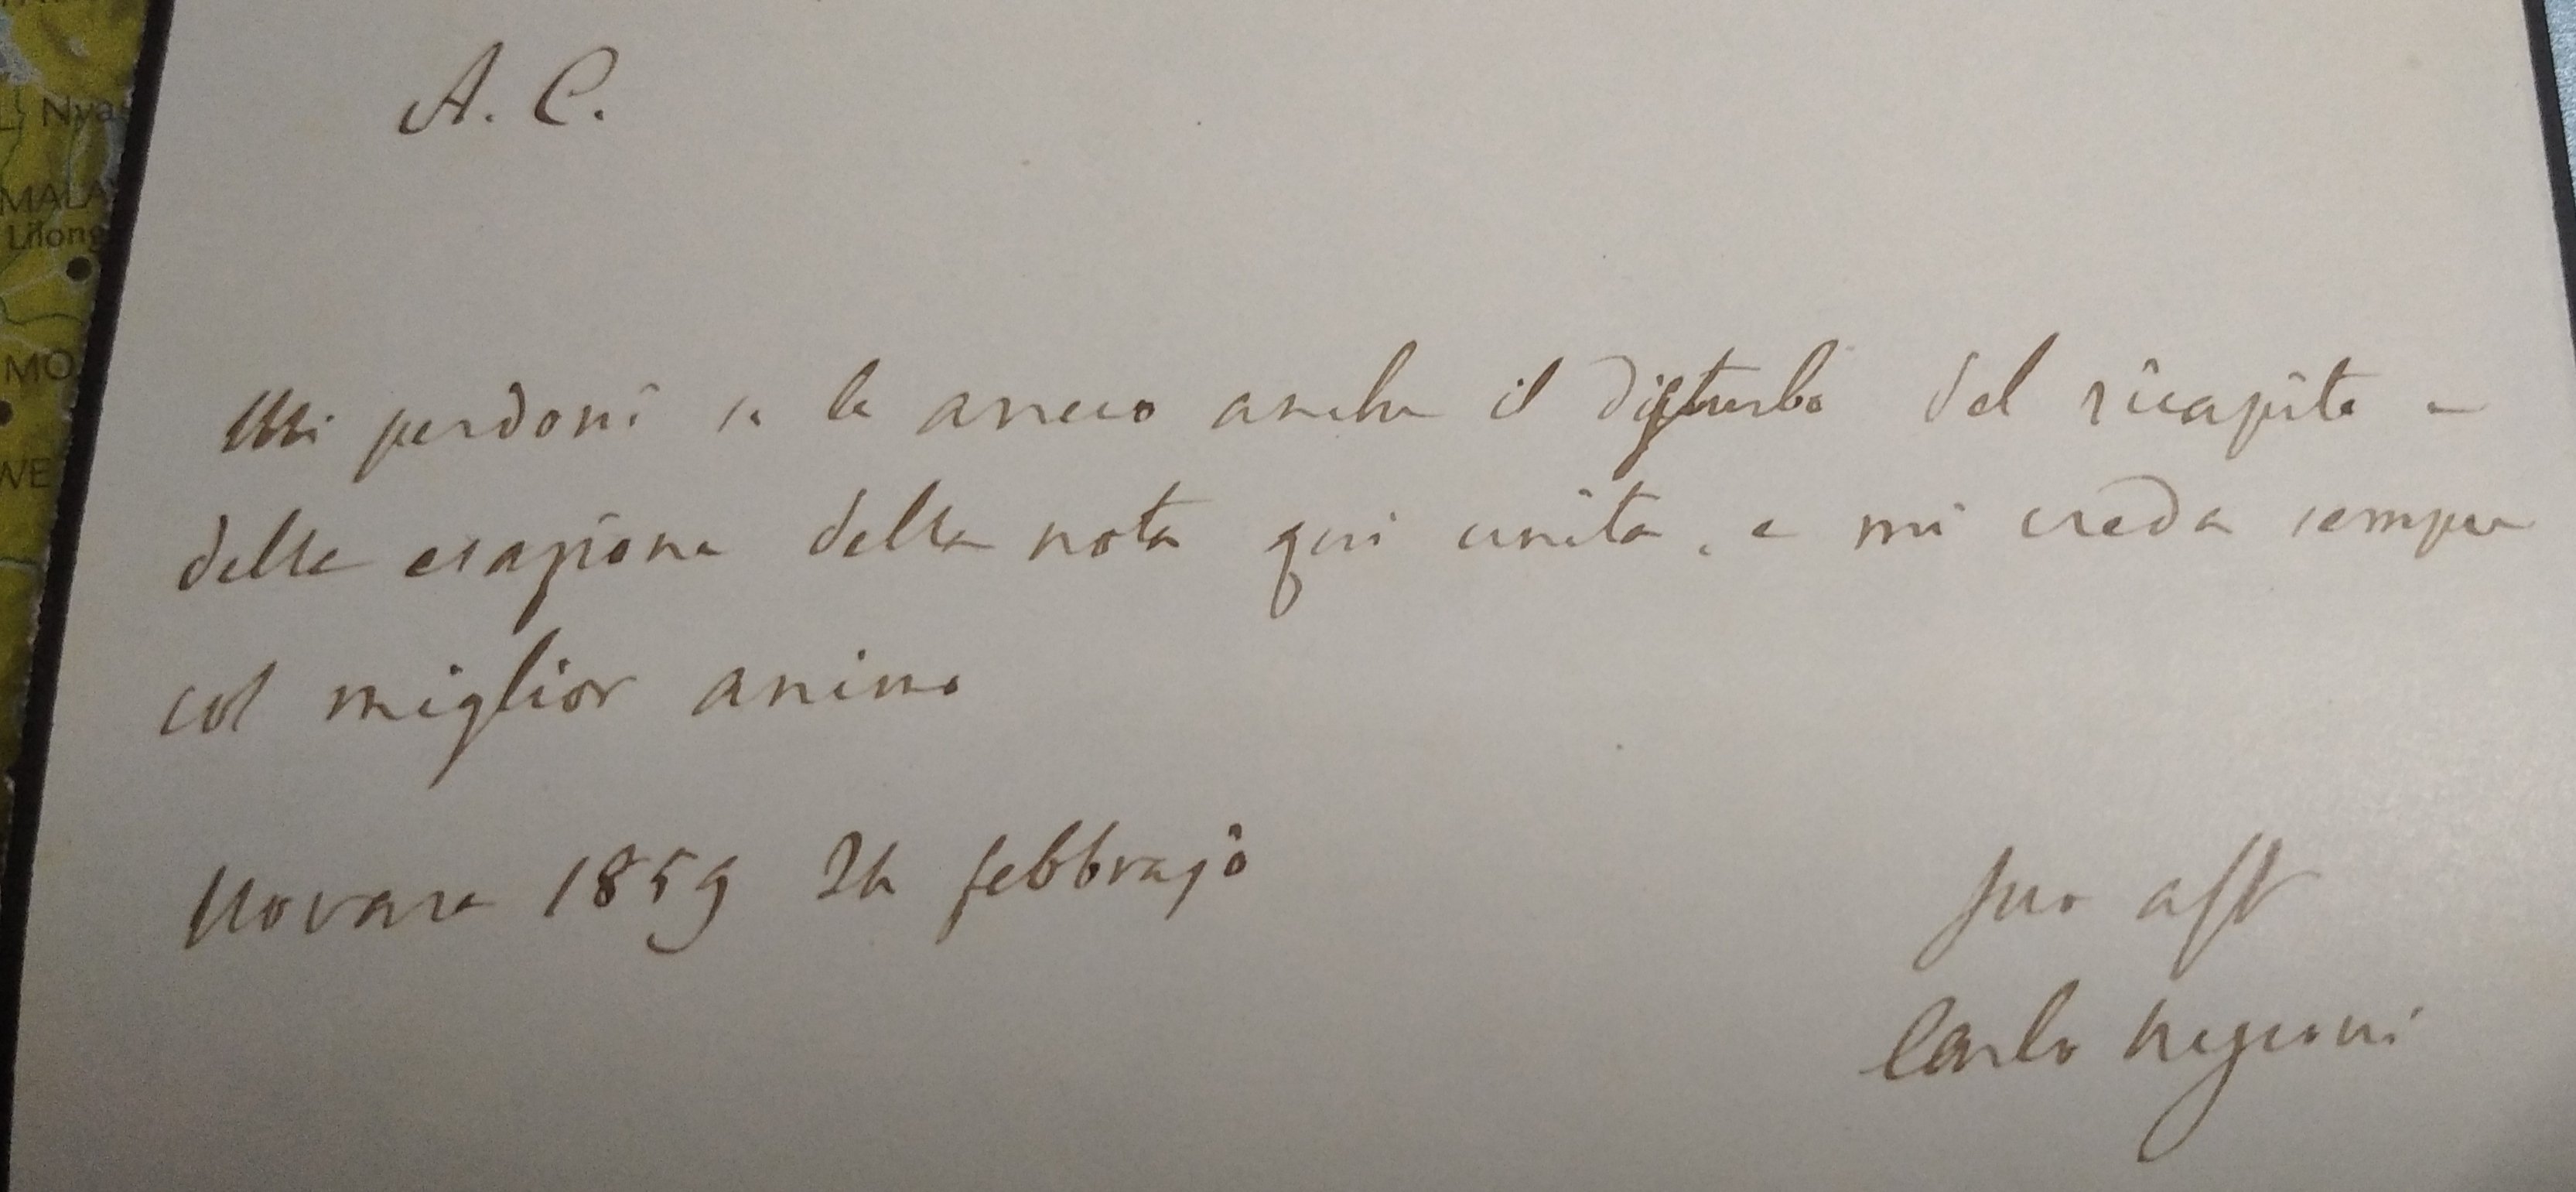 A. C.
Mi perdoni se le arreco anche il disturbo del ricapito e
della esazione della nota qui unita, e mi creda sempre
col miglior animo
Novara 1859 24 febbrajo
Suo aff
Carlo Negroni
L. Nyas
MALA
Lilong
MO
WE